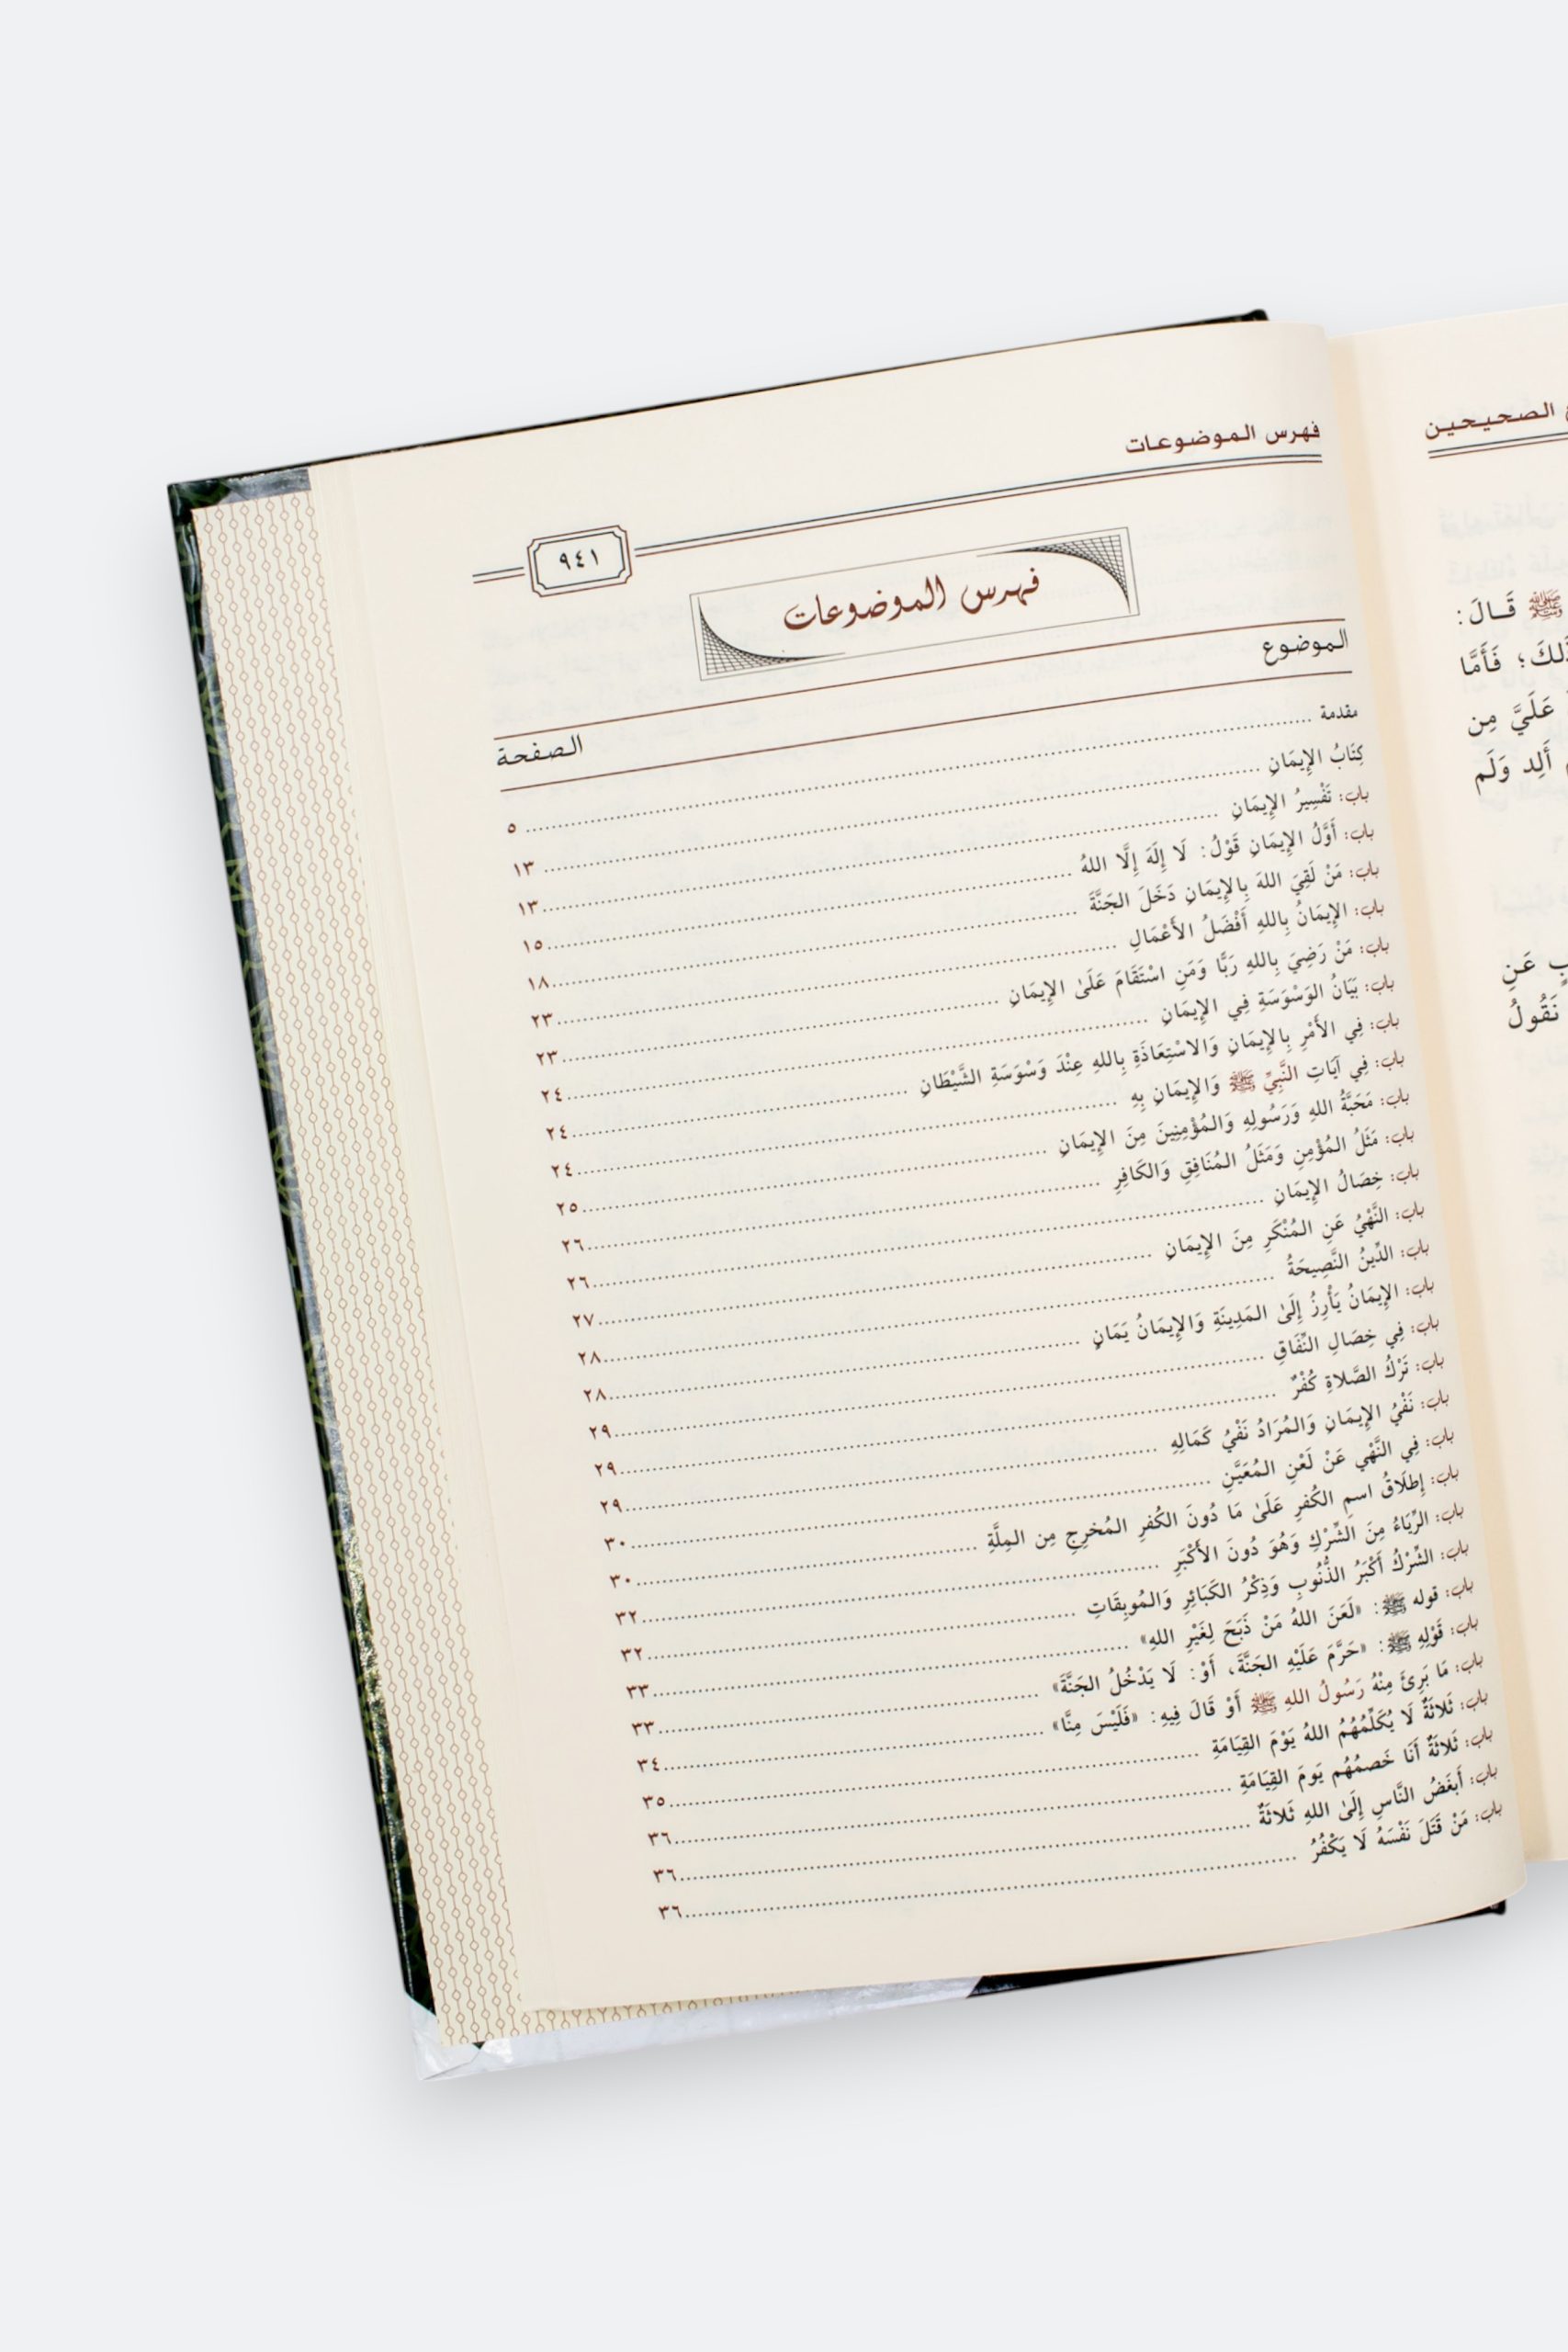 الصحيحين
ﷺ قَالَ:
ذَلِكَ؛ فَأَمَّا
عَلَيَّ مِن
أَلِد وَلَم
عَنِ
نَقُولُ
فهرس الموضوعات
٩٤١
فهرس الموضوعات
الموضوع الصفحة
مقدمة ٥
كِتَابُ الإِيمَانِ ١٣
باب: تَفْسِيرُ الإِيمَانِ ١٣
باب: أَوَّلُ الإِيمَانِ قَوْلُ: لَا إِلَهَ إِلَّا اللهُ ١٥
باب: مَنْ لَقِيَ اللهَ بِالإِيمَانِ دَخَلَ الجَنَّةَ ١٨
باب: الإِيمَانُ بِاللهِ أَفْضَلُ الأَعْمَالِ ٢٣
باب: مَنْ رَضِيَ بِاللهِ رَبًّا وَمَنِ اسْتَقَامَ عَلَىٰ الإِيمَانِ ٢٣
باب: بَيَانُ الوَسْوَسَةِ فِي الإِيمَانِ ٢٤
باب: فِي الأَمْرِ بِالإِيمَانِ وَالاسْتِعَاذَةِ بِاللهِ عِنْدَ وَسْوَسَةِ الشَّيْطَانِ ٢٤
باب: فِي آيَاتِ النَّبِيِّ ﷺ وَالإِيمَانِ بِهِ ٢٤
باب: مَحَبَّةُ اللهِ وَرَسُولِهِ وَالمُؤْمِنِينَ مِنَ الإِيمَانِ ٢٥
باب: مَثَلُ المُؤْمِنِ وَمَثَلُ المُنَافِقِ وَالكَافِرِ ٢٦
باب: خِصَالُ الإِيمَانِ ٢٦
باب: النَّهْيُ عَنِ المُنْكَرِ مِنَ الإِيمَانِ ٢٧
باب: الدِّينُ النَّصِيحَةُ ٢٨
باب: الإِيمَانُ يَأْرِزُ إِلَىٰ المَدِينَةِ وَالإِيمَانُ يَمَانٍ ٢٨
باب: فِي خِصَالِ النِّفَاقِ ٢٩
باب: تَرْكُ الصَّلاةِ كُفْرٌ ٢٩
باب: نَفْيُ الإِيمَانِ وَالمُرَادُ نَفْيُ كَمَالِهِ ٢٩
باب: فِي النَّهْي عَنْ لَعْنِ المُعَيَّنِ ٣٠
باب: إِطلَاقُ اسمِ الكُفرِ عَلَىٰ مَا دُونَ الكُفرِ المُخرِجِ مِن المِلَّةِ ٣٠
باب: الرِّيَاءُ مِنَ الشِّرْكِ وَهُوَ دُونَ الأَكْبَرِ ٣٢
باب: الشِّرْكُ أَكْبَرُ الذُّنُوبِ وَذِكْرُ الكَبَائِرِ وَالمُوبِقَاتِ ٣٢
باب: قوله ﷺ: «لَعَنَ اللهُ مَنْ ذَبَحَ لِغَيْرِ اللهِ» ٣٣
باب: قَوْلِهِ ﷺ: «حَرَّمَ عَلَيْهِ الجَنَّةَ، أَوْ: لَا يَدْخُلُ الجَنَّةَ» ٣٣
باب: مَا بَرِئَ مِنْهُ رَسُولُ اللهِ ﷺ أَوْ قَالَ فِيهِ: «فَلَيْسَ مِنَّا» ٣٤
باب: ثَلاثَةٌ لَا يُكَلِّمُهُمُ اللهُ يَوْمَ القِيَامَةِ ٣٥
باب: ثَلاثَةٌ أَنَا خَصمُهُم يَومَ القِيَامَةِ ٣٦
باب: أَبغَضُ النَّاسِ إِلَىٰ اللهِ ثَلاثَةٌ ٣٦
باب: مَنْ قَتَلَ نَفْسَهُ لَا يَكْفُرُ ٣٦